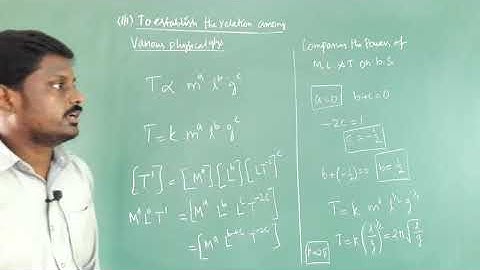 (iii) To establish the relation among
Various physical qtys
T ∝ m^a l^b g^c
T = k m^a l^b g^c
[T¹] = [M^a] [L^b] [LT⁻²]^c
M⁰ L⁰ T¹ = [M^a L^b L^c T^-2c]
= [M^a L^b+c T^-2c]
Comparing the Powers of
M, L & T on b.s
a=0 b+c=0
-2c=1
c=-½
b+(-½)=0 b=½
T = k m⁰ l^½ g^-½
T = k (l/g)^½ = 2π√(l/g)
k=2π